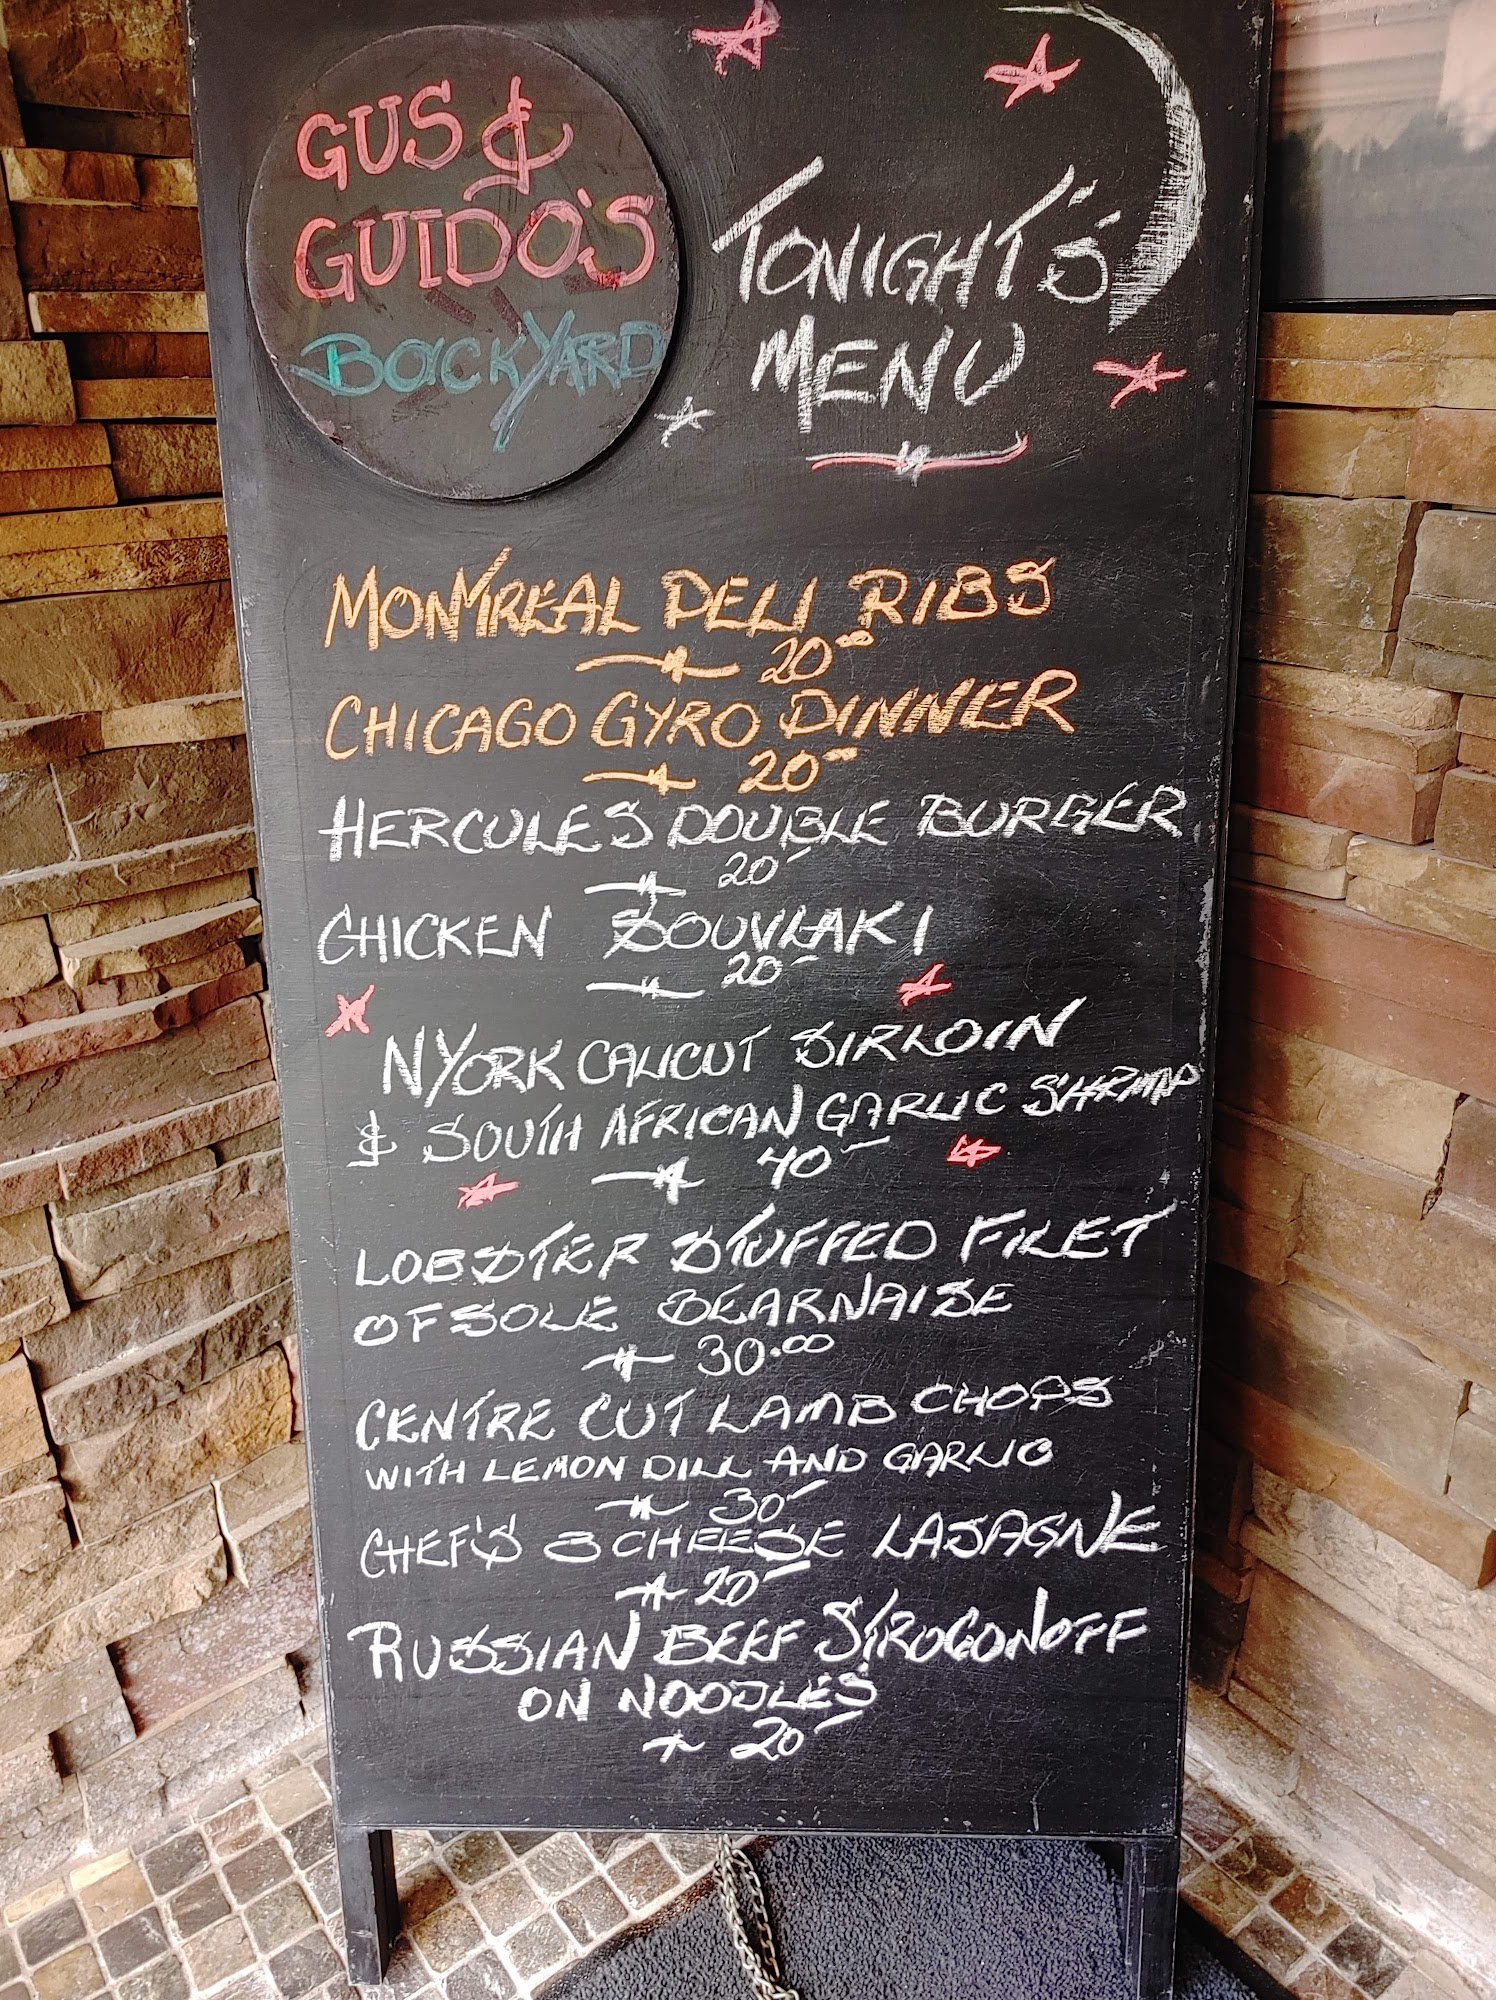 GUS &
GUIDO'S
BACKYARD
TONIGHT'S
MENU
MONTREAL DELI RIBS
20.00
CHICAGO GYRO DINNER
20
HERCULES DOUBLE BURGER
20
CHICKEN SOUVLAKI
20
NYORK CALICUT SIRLOIN
& SOUTH AFRICAN GARLIC SHRIMP
40
LOBSTER STUFFED FILET
OF SOLE BEARNAISE
30.00
CENTRE CUT LAMB CHOPS
WITH LEMON DILL AND GARLIC
30
CHEF'S 3 CHEESE LASAGNE
20
RUSSIAN BEEF STROGONOFF
ON NOODLES
20